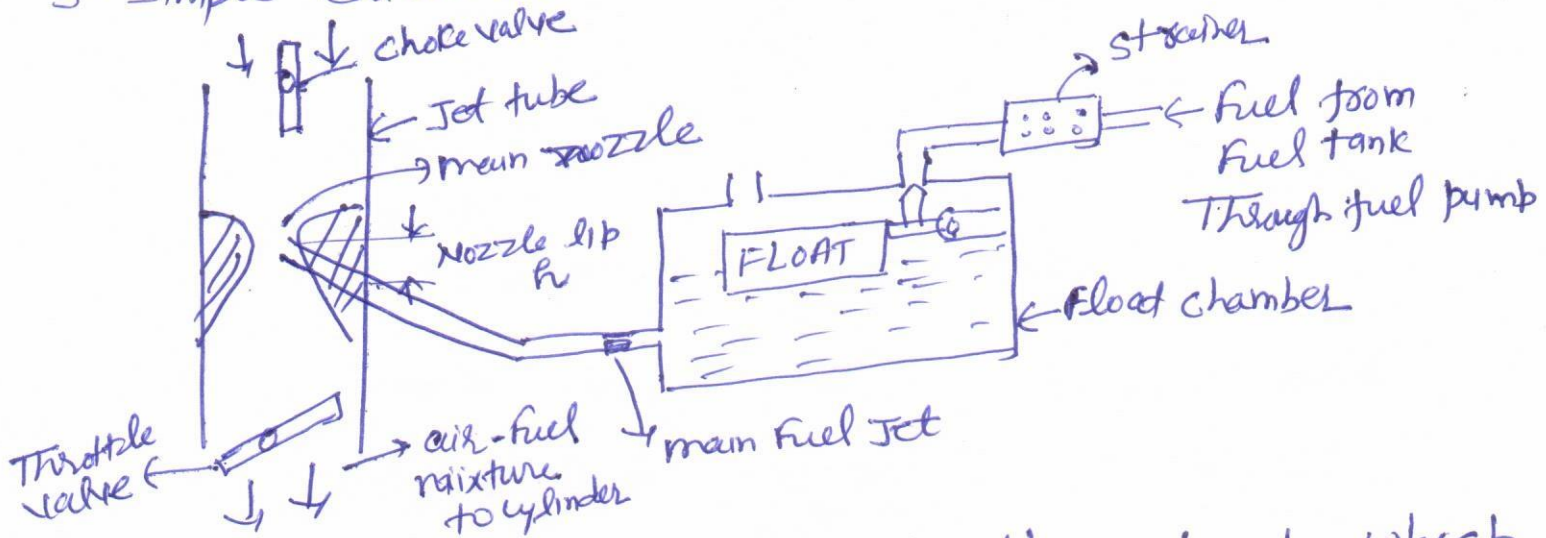 Simple
choke valve
Jet tube
main nozzle
Nozzle lip
h
FLOAT
strainer
Fuel from
Fuel tank
Through fuel pump
Float chamber
main Fuel Jet
air-fuel
mixture
to cylinder
Throttle
valve